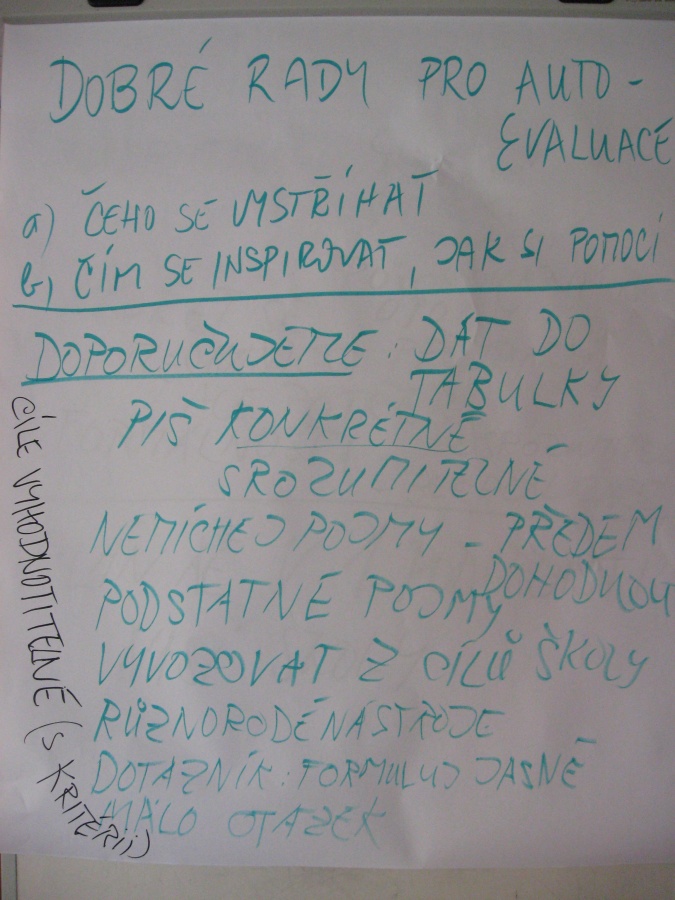 DOBRÉ RADY PRO AUTO-
EVALUACE
a) ČEHO SE VYSTŘÍHAT
b) ČÍM SE INSPIROVAT, JAK SI POMOCI
DOPORUČUJEME: DÁT DO
TABULKY
PIŠ KONKRÉTNĚ
SROZUMITELNĚ
NEMÍCHEJ POJMY - PŘEDEM
DOHODNOU
PODSTATNÉ POJMY
VYVOZOVAT Z CÍLŮ ŠKOLY
RŮZNORODÉ NÁSTROJE
DOTAZNÍK: FORMULUJ JASNĚ
MÁLO OTÁZEK
CÍLE VYHODNOTITELNÉ (S KRITÉRII)